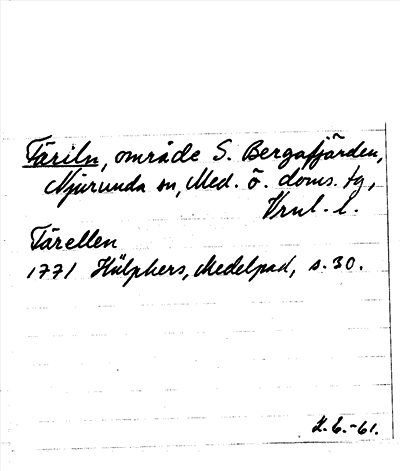 Täriln, område S. Bergafjärden,
Njurunda sn, Med. ö. doms. tg,
Vrnl. l.
Tärellen
1771 Hülphers, Medelpad, s. 30.
L.E.-61.